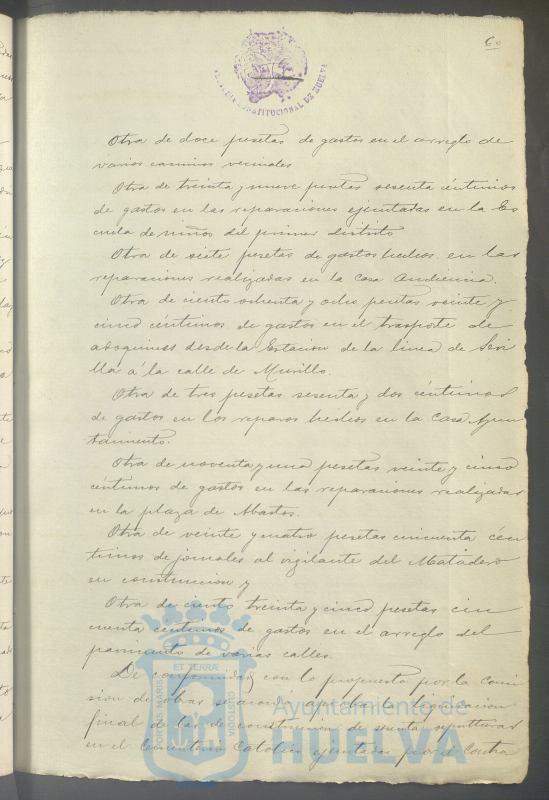 60
ALCALDIA CONSTITUCIONAL DE HUELVA
Otra de doce pesetas de gastos en el arreglo de
varios caminos vecinales
Otra de treinta y nueve pesetas sesenta céntimos
de gastos en las reparaciones ejecutadas en la Es
cuela de niños del primer distrito
Otra de siete pesetas de gastos hechos en las
reparaciones realizadas en la Casa Audiencia.
Otra de ciento ochenta y ocho pesetas veinte y
cinco céntimos de gastos en el trasporte de
adoquines desde la Estacion de la linea de Sevi
lla á la calle de Murillo.
Otra de tres pesetas sesenta y dos céntimos
de gastos en los reparos hechos en la Casa Ayun
tamiento.
Otra de noventa y una pesetas veinte y cinco
céntimos de gastos en las reparaciones realizadas
en la plaza de Abastos.
Otra de veinte y cuatro pesetas cincuenta cén
timos de jornales al vigilante del Matadero
en construccion y
Otra de ciento treinta y cinco pesetas cin
cuenta centimos de gastos en el arreglo del
pavimento de varias calles.
De conformidad con lo propuesto por la Comi
sion de obras se acordó aprobar la liquidacion
final de las de construccion de sesenta sepulturas
en el Cementerio Catolico ejecutadas por el Contra
PORTUS MARIS ET TERRÆ CUSTODIA
Ayuntamiento de
HUELVA